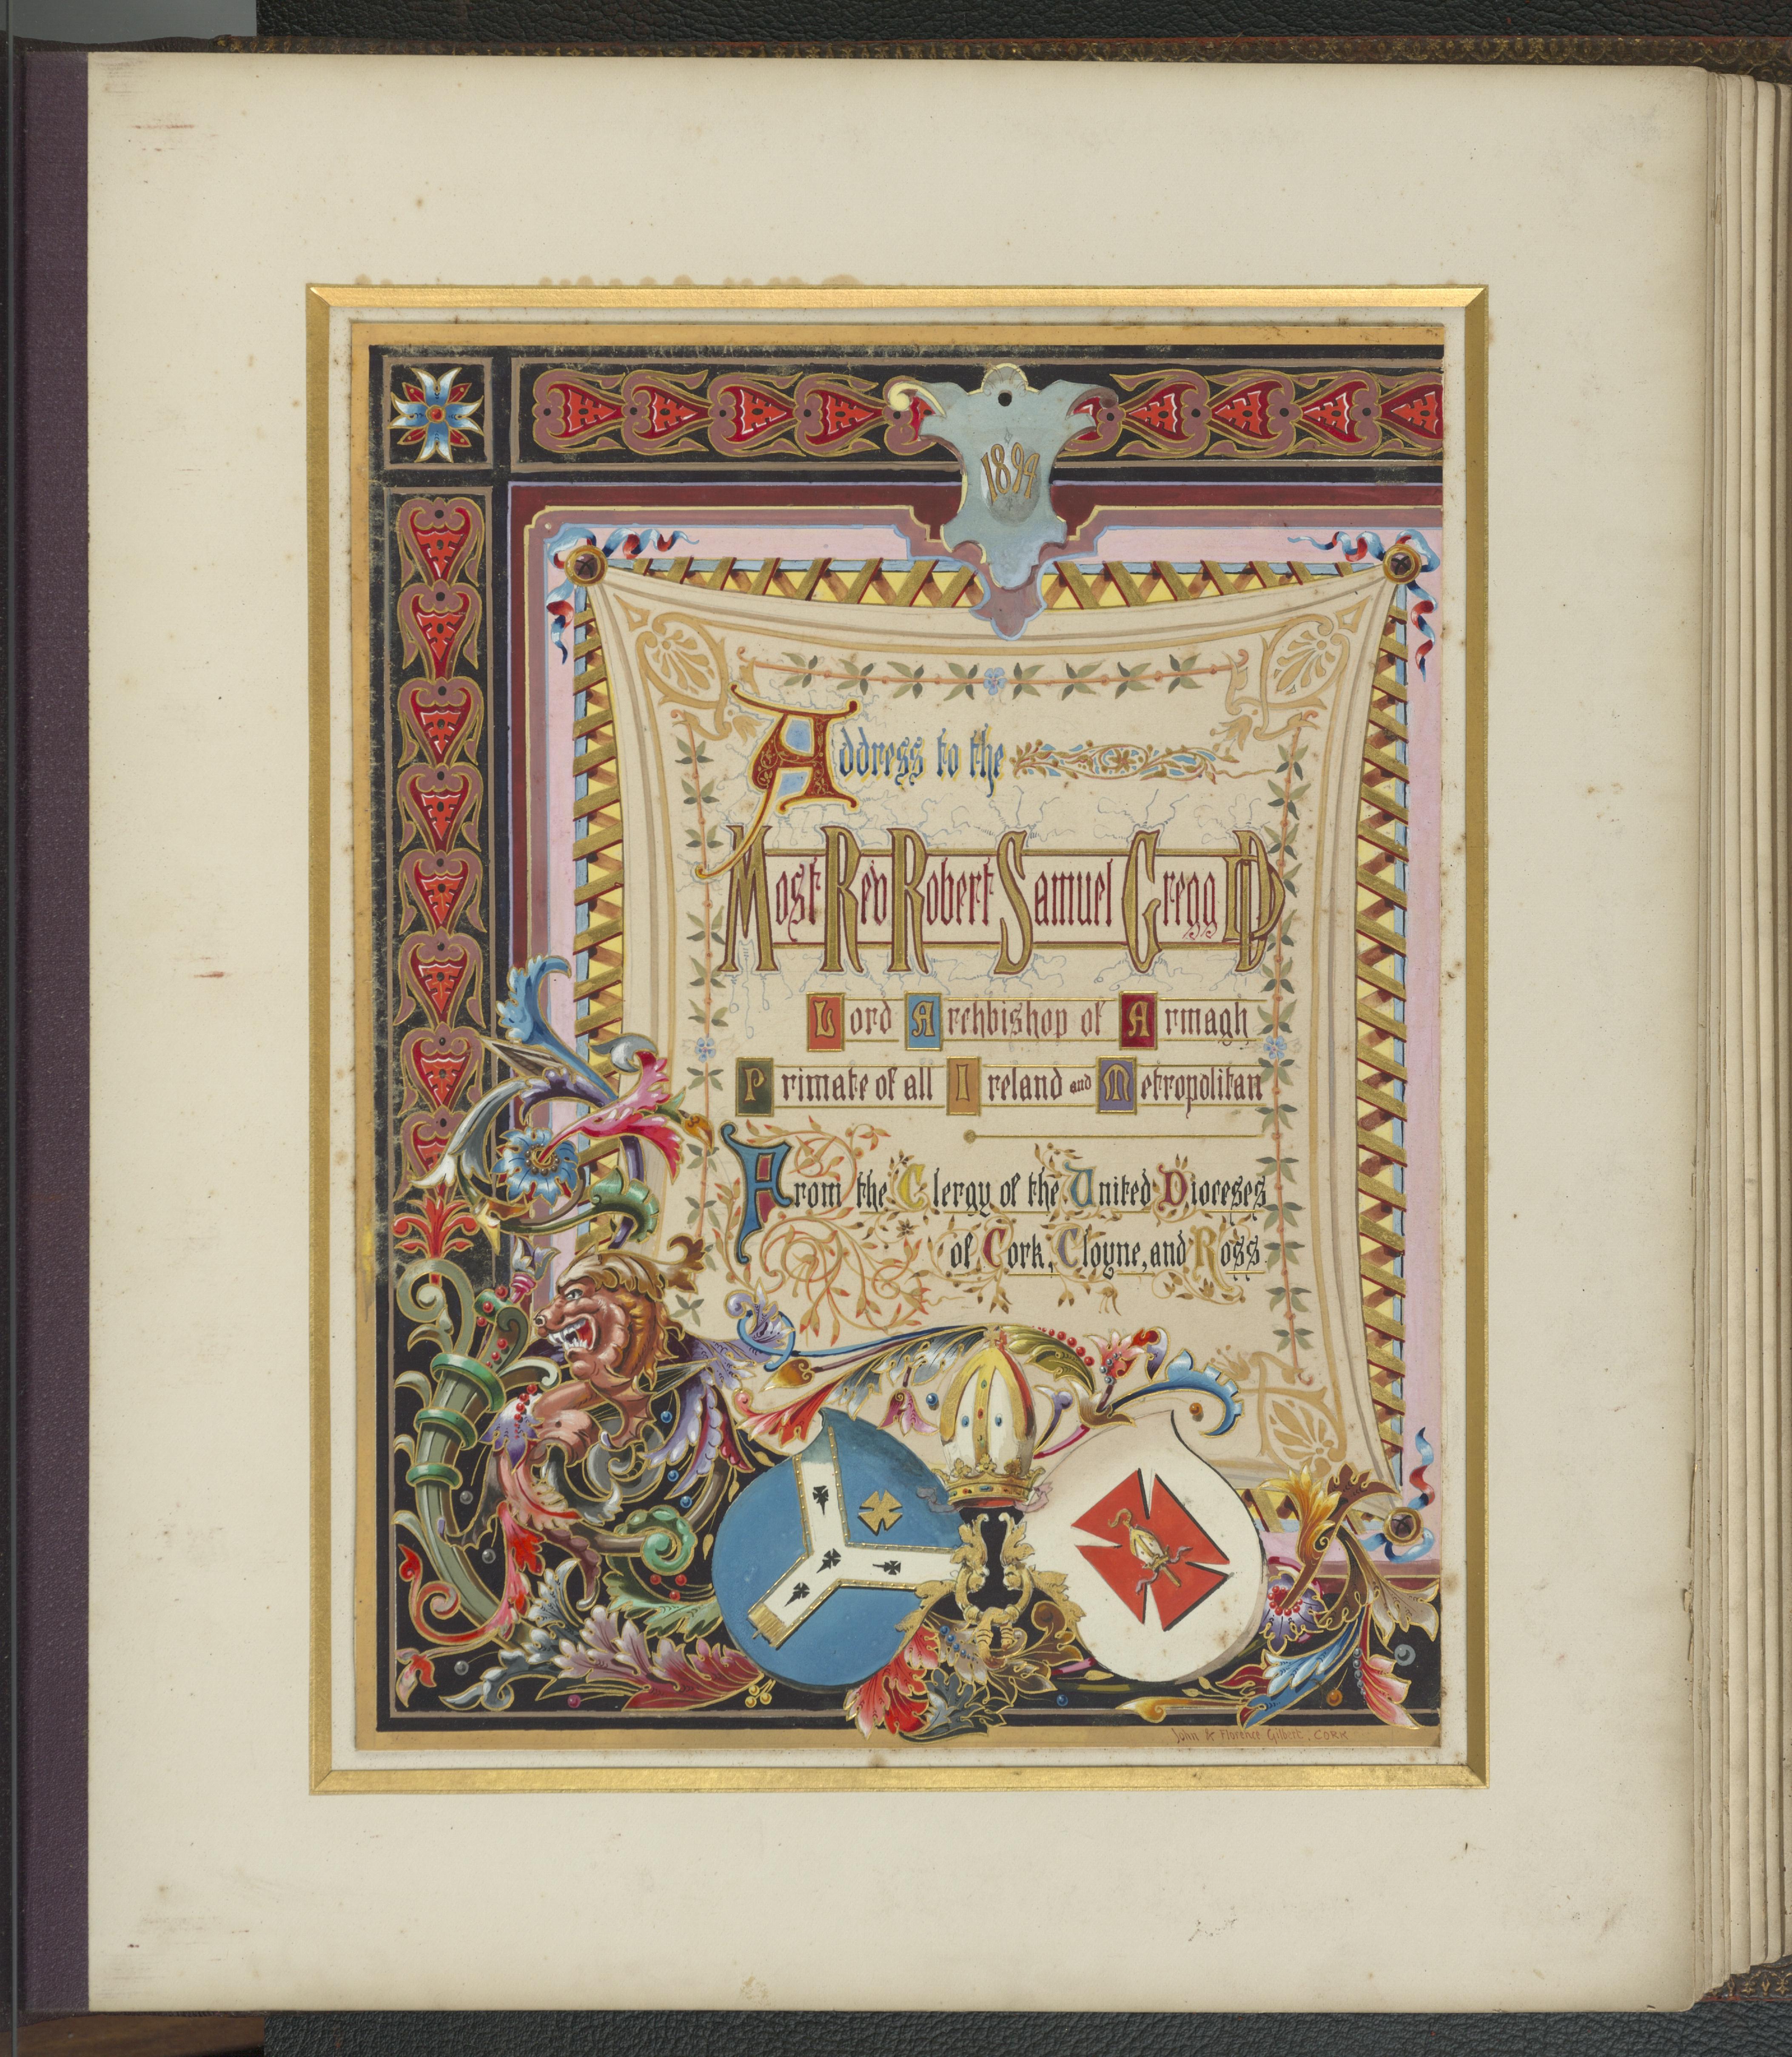 1894
Address to the
Most Rev Robert Samuel Gregg DD
Lord Archbishop of Armagh
Primate of all Ireland and Metropolitan
From the Clergy of the United Dioceses
of Cork, Cloyne, and Ross
John & Florence Gilbert, CORK